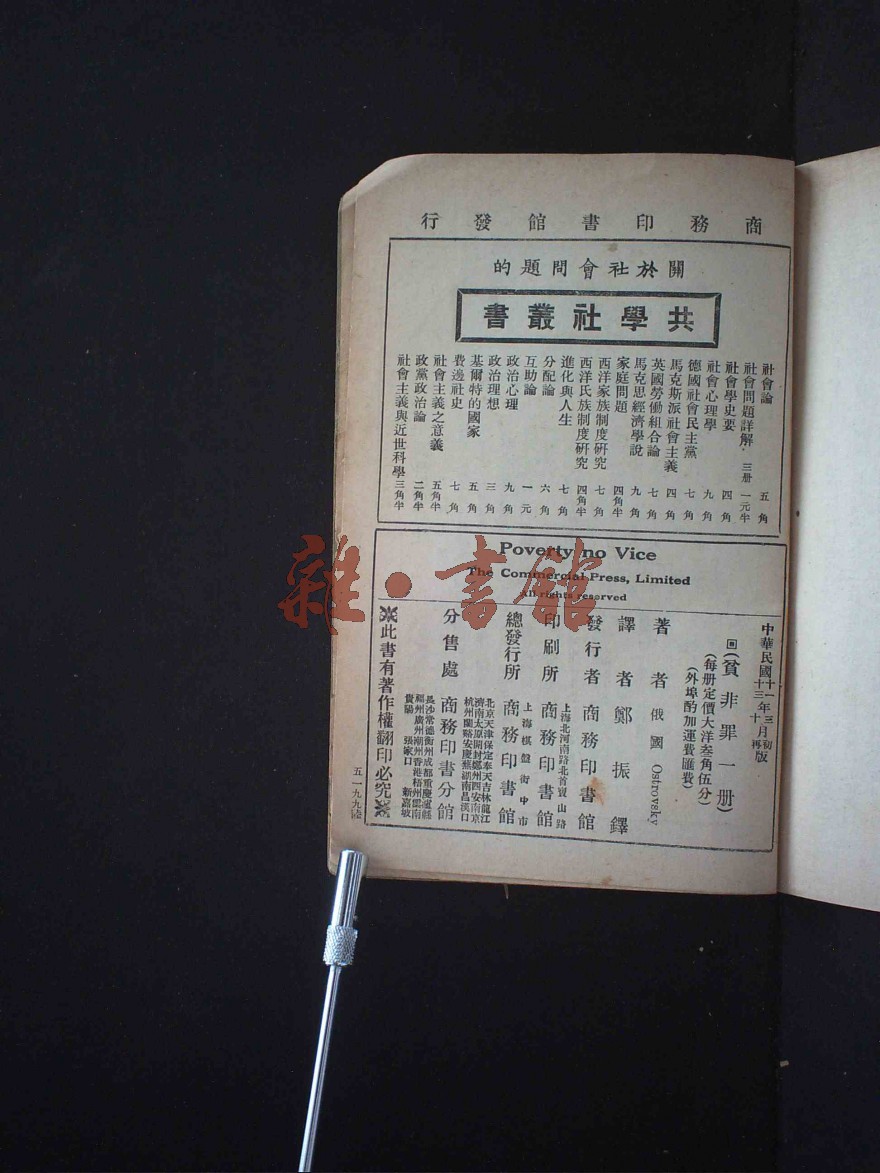 商務印書館發行
關於社會問題的
共學社叢書
社會論 五角
社會問題詳解 三册 一元半
社會學史要 四角
社會心理學 九角
德國社會民主黨 七角
馬克斯派社會主義 四角
英國勞働組合論 七角
馬克思經濟學說 九角
家庭問題 四角半
西洋家族制度研究 七角
西洋氏族制度研究 四角半
進化與人生 七角
分配論 六角
互助論 一元
政治心理 九角
政治理想 三角
基爾特的國家 五角
費邊社史 七角
社會主義之意義 五角半
政黨政治論 二角半
社會主義與近世科學 三角半
Poverty no Vice
The Commercial Press, Limited
All rights reserved
中華民國十一年三月初版
十三年十月再版
回(貧非罪一册)
(每册定價大洋叁角伍分)
(外埠酌加運費匯費)
著者 俄國 Ostrovsky
譯者 鄭振鐸
發行者 商務印書館
印刷所 上海北河南路北首寶山路 商務印書館
總發行所 上海棋盤街中市 商務印書館
分售處 商務印書分館
北京天津保定奉天吉林龍江
濟南太原開封鄭州西安南京
杭州蘭谿安慶蕪湖南昌漢口
長沙常德衡州成都重慶瀘縣
福州廣州潮州香港梧州雲南
貴陽 張家口 新嘉坡
此書有著作權翻印必究
五一九九陸
雜·書館